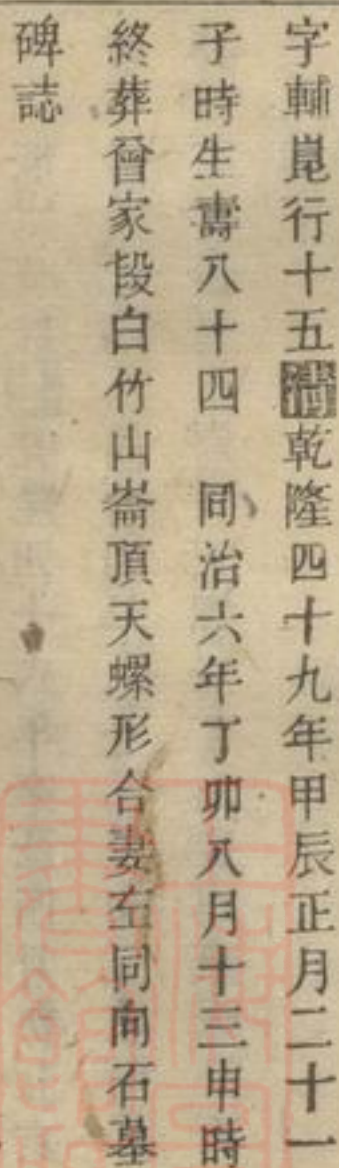 字輔崑行十五清乾隆四十九年甲辰正月二十一
子時生壽八十四　同治六年丁卯八月十三申時
終葬曾家段白竹山崙頂天螺形合妻左同向石墓
碑誌